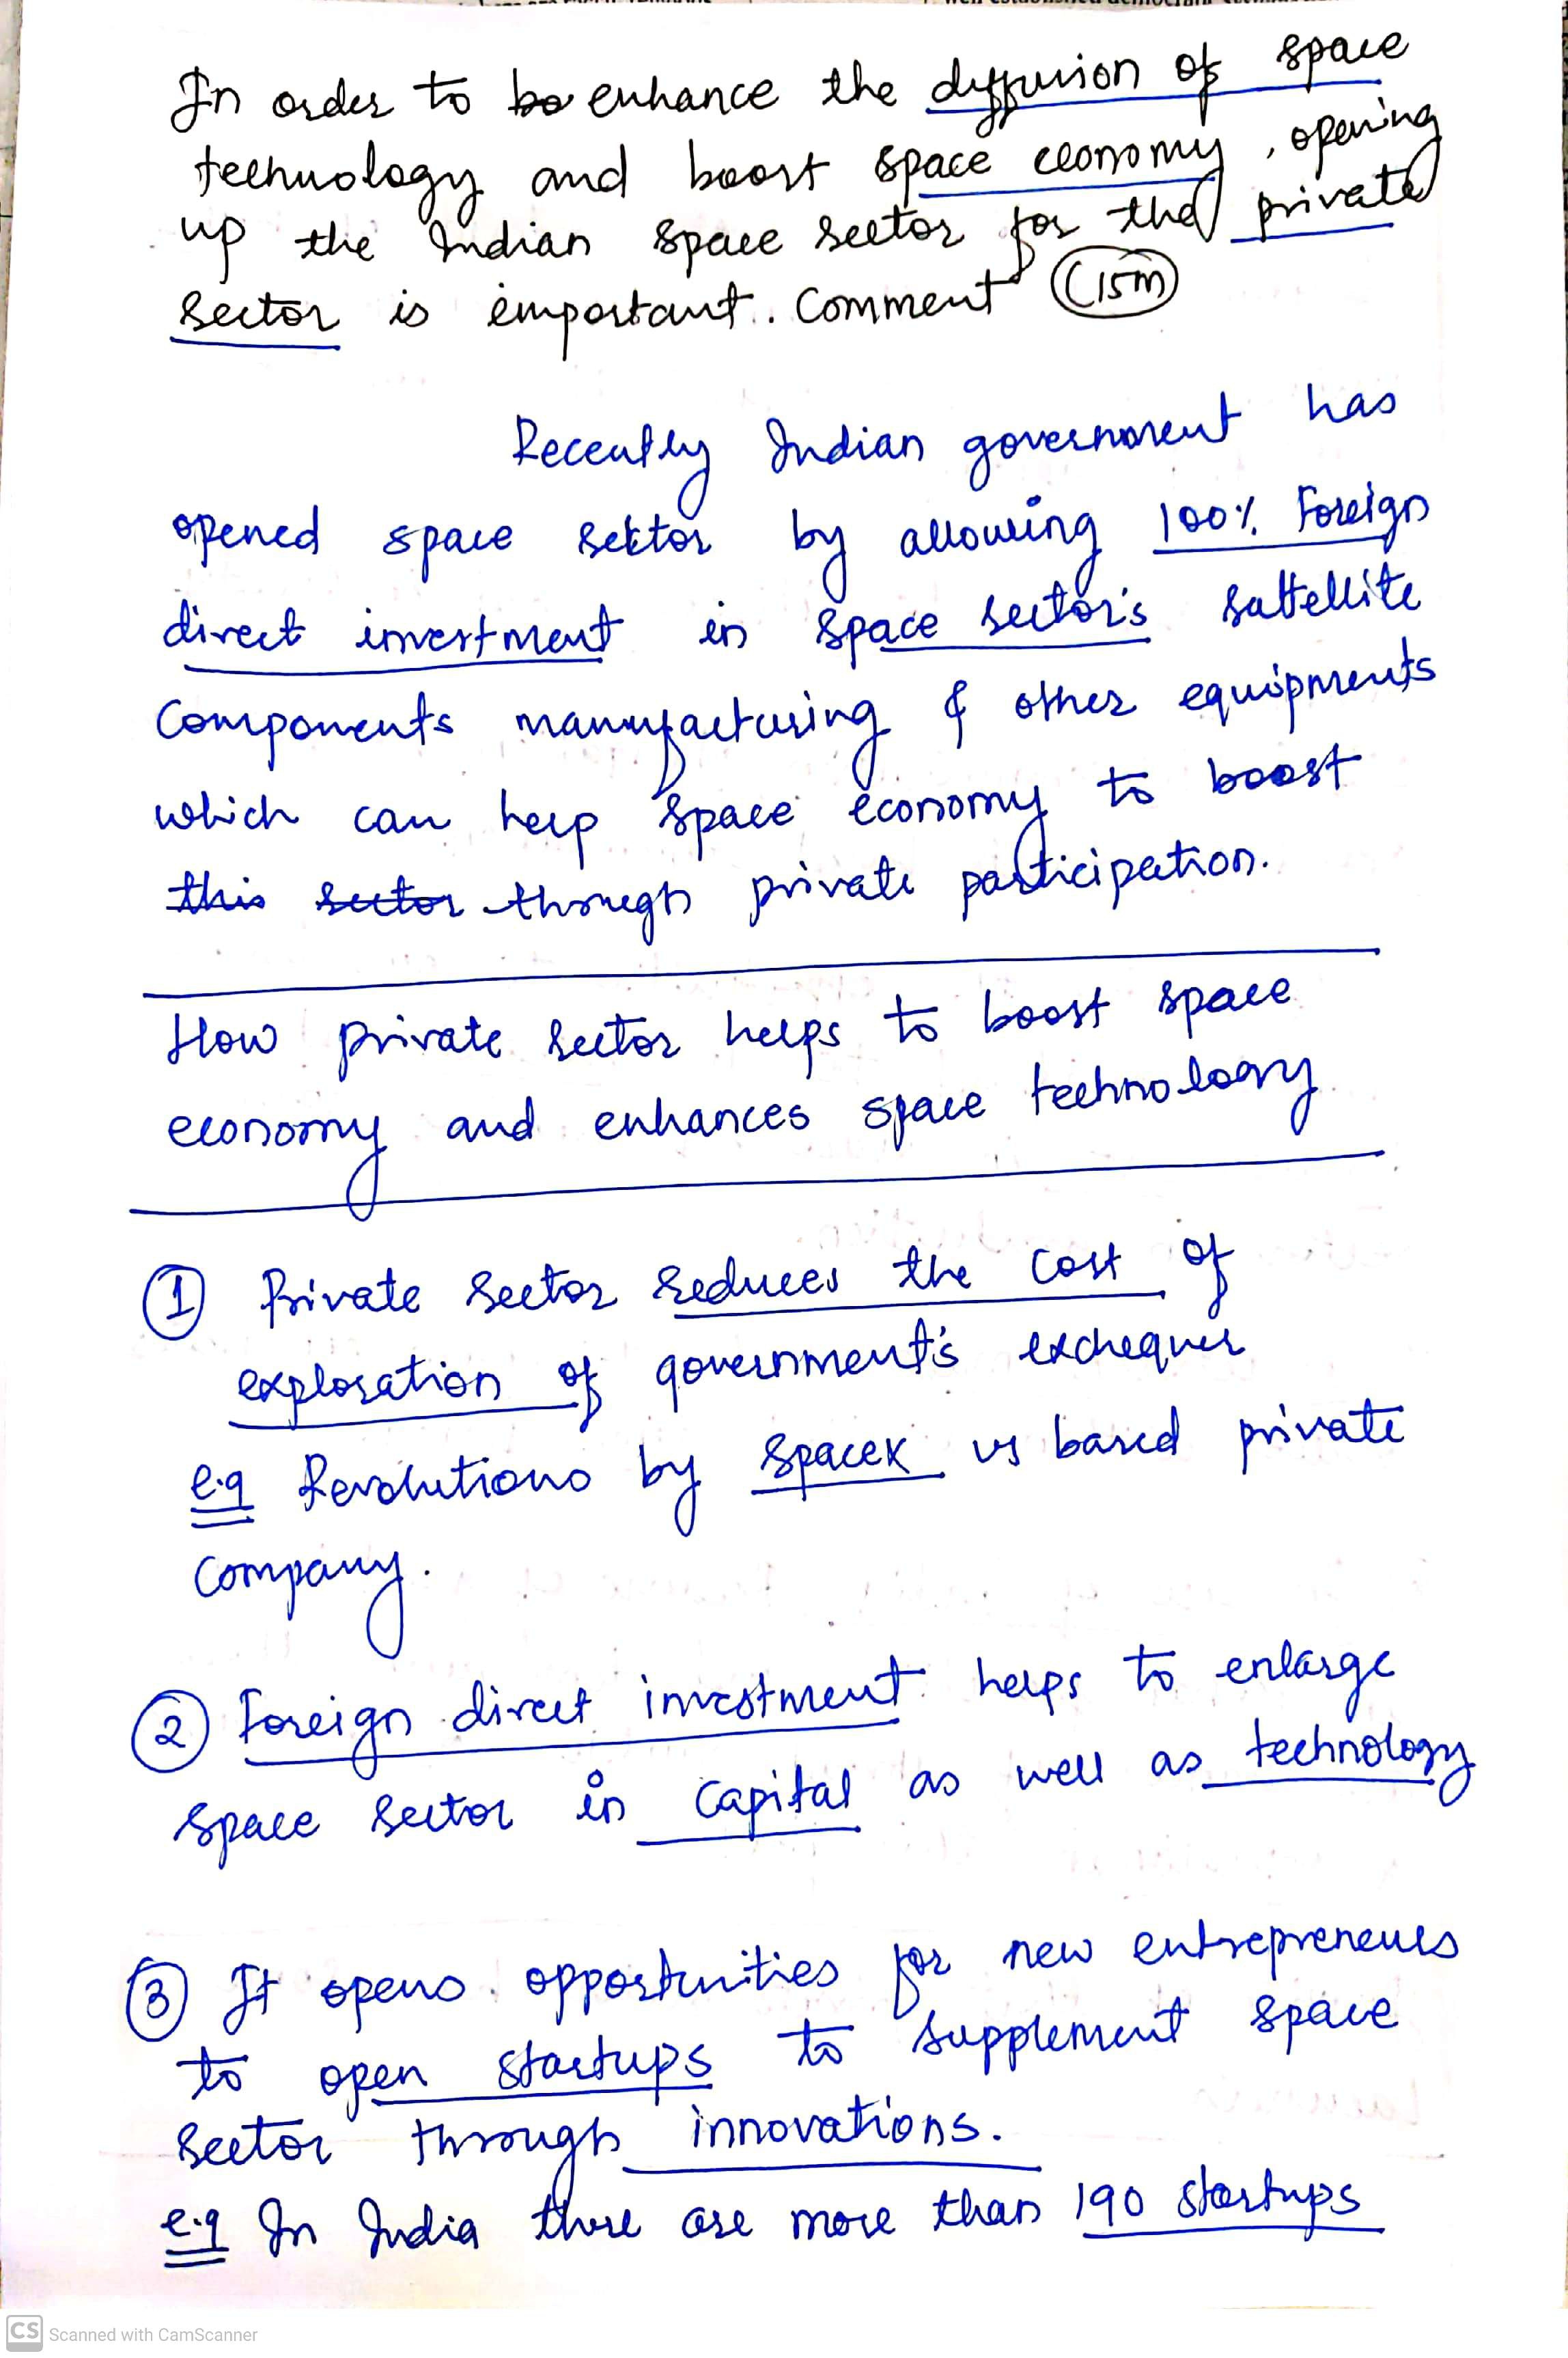 In order to be enhance the diffusion of space
technology and boost space economy, opening
up the Indian space sector for the private
sector is important. Comment (15m)
Recently Indian government has
opened space sektor by allowing 100% Foreign
direct investment in space sector's sattellite
Components manufacturing & other equipments
which can help space economy to boost
this sector through private participation.
How private sector helps to boost space
economy and enhances space technology
1 Private sector reduces the cost of
exploration of government's exchequer
e.g Revolutions by spacex us based private
company.
2 Foreign direct investment helps to enlarge
space sector in capital as well as technology
3 It opens opportunities for new entrepreneurs
to open startups to supplement space
sector through innovations.
e.g In India there are more than 190 startups
CS Scanned with CamScanner